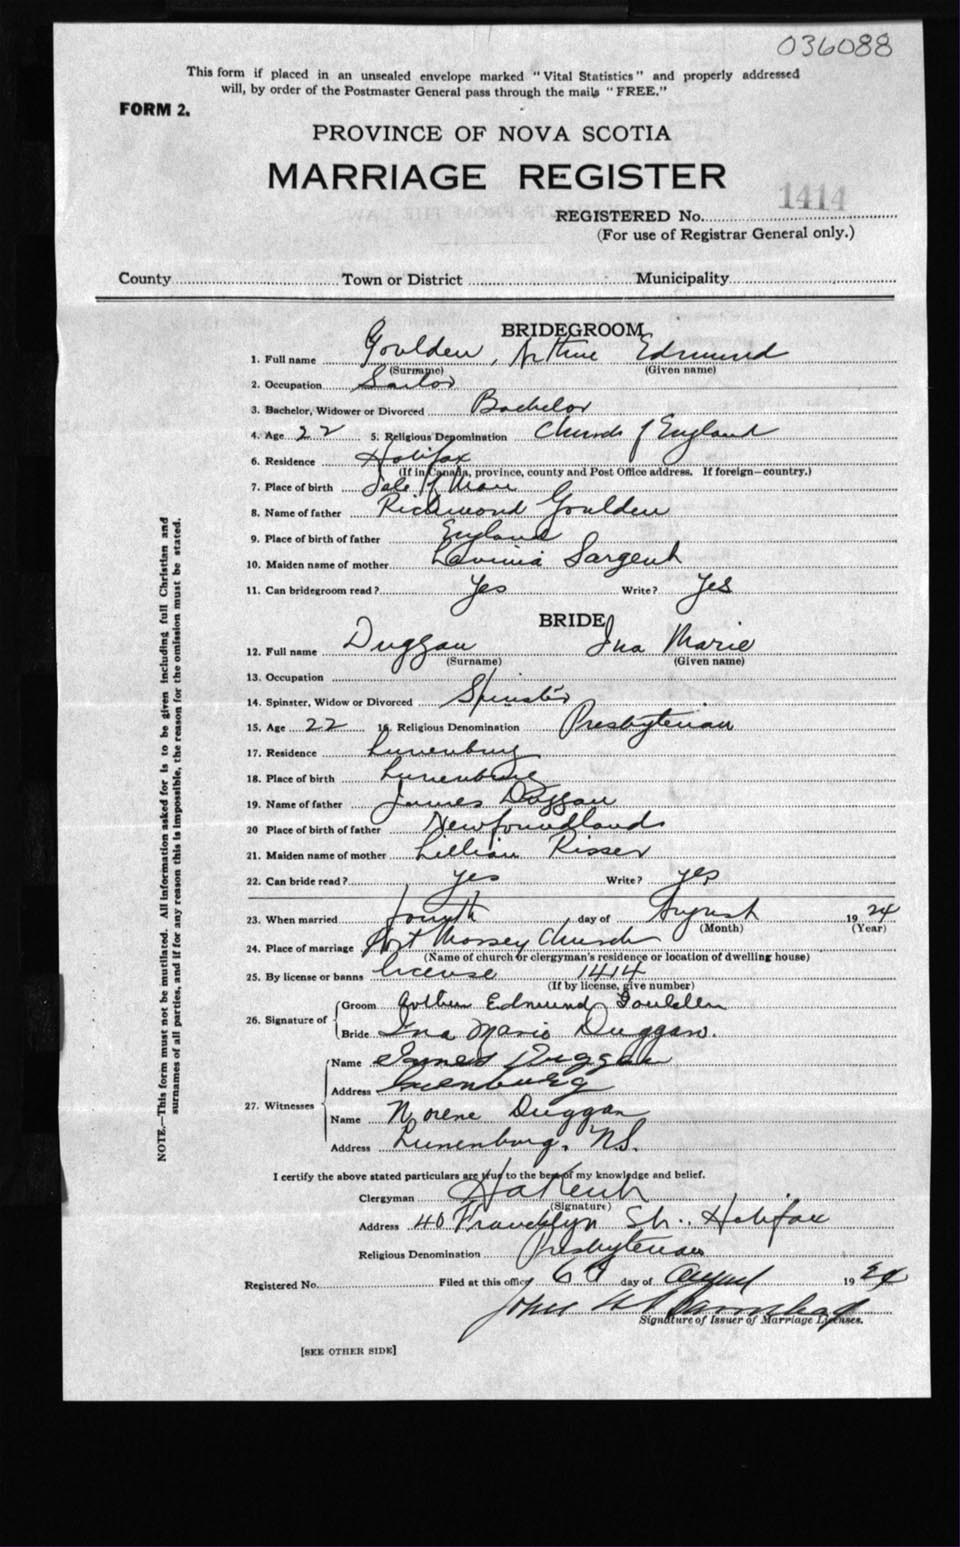 036088
This form if placed in an unsealed envelope marked "Vital Statistics" and properly addressed
will, by order of the Postmaster General pass through the mails "FREE."
FORM 2.
PROVINCE OF NOVA SCOTIA
MARRIAGE REGISTER
1414
REGISTERED No.
(For use of Registrar General only.)
County Town or District Municipality
BRIDEGROOM
1. Full name Goulden, Arthur Edmund
(Surname) (Given name)
2. Occupation Sailor
3. Bachelor, Widower or Divorced Bachelor
4. Age 22 5. Religious Denomination Church of England
6. Residence Halifax
(If in Canada, province, county and Post Office address. If foreign—country.)
7. Place of birth Isle of Man
8. Name of father Richmond Goulden
9. Place of birth of father England
10. Maiden name of mother Lavinia Sargent
11. Can bridegroom read? Yes Write? Yes
BRIDE
12. Full name Duggan Ina Marie
(Surname) (Given name)
13. Occupation
14. Spinster, Widow or Divorced Spinster
15. Age 22 16. Religious Denomination Presbyterian
17. Residence Lunenburg
18. Place of birth Lunenburg
19. Name of father James Duggan
20 Place of birth of father Newfoundland
21. Maiden name of mother Lillian Risser
22. Can bride read? yes Write? yes
23. When married fourth day of August 1924
(Month) (Year)
24. Place of marriage Fort Massey Church
(Name of church or clergyman's residence or location of dwelling house)
25. By license or banns license 1414
(If by license, give number)
26. Signature of
Groom Arthur Edmund Goulden
Bride Ina Marie Duggan.
27. Witnesses
Name James Duggan
Address Lunenburg
Name Norene Duggan
Address Lunenburg, N.S.
I certify the above stated particulars are true to the best of my knowledge and belief.
Clergyman
(Signature)
Address 40 Francklyn St., Halifax
Religious Denomination Presbyterian
Registered No. Filed at this office 6th day of August 1924
John
Signature of Issuer of Marriage Licenses.
[SEE OTHER SIDE]
NOTE.—This form must not be mutilated. All information asked for is to be given including full Christian and
surnames of all parties, and if for any reason this is impossible, the reason for the omission must be stated.